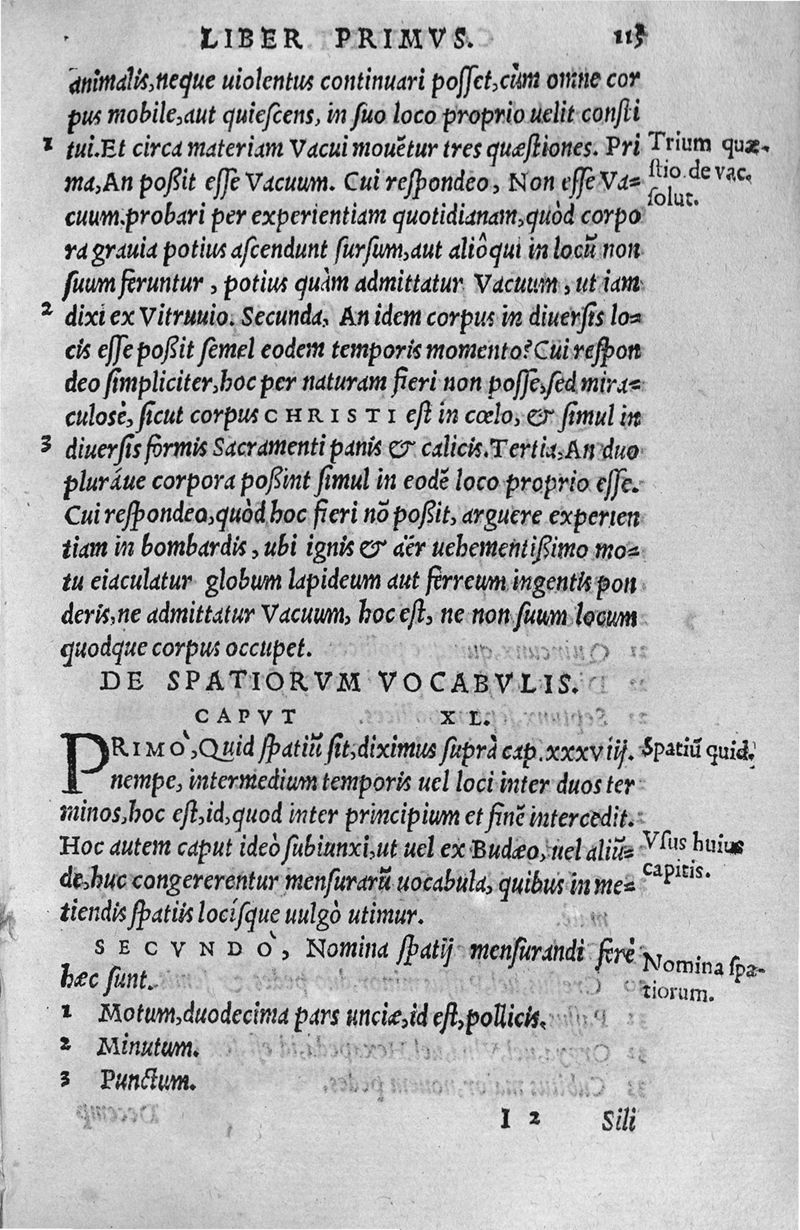 LIBER PRIMVS. 115
animalis, neque uiolentus continuari posset, cùm omne cor
pus mobile, aut quiescens, in suo loco proprio uelit consti
1 tui. Et circa materiam Vacui mouētur tres quæstiones. Pri
Trium quæ-
ma, An poßit esse Vacuum. Cui respondeo, Non esse Va=
stio. de vac.
solut.
cuum. probari per experientiam quotidianam, quòd corpo
ra grauia potius ascendunt sursum, aut aliôqui in locū non
suum feruntur, potius quàm admittatur Vacuum, ut iam
2 dixi ex Vitruuio. Secunda, An idem corpus in diuersis lo=
cis esse poßit semel eodem temporis momento? Cui respon
deo simpliciter, hoc per naturam fieri non posse, sed mira=
culosè, sicut corpus CHRISTI est in cœlo, & simul in
3 diuersis formis Sacramenti panis & calicis. Tertia, An duo
pluráue corpora poßint simul in eodē loco proprio esse.
Cui respondeo, quòd hoc fieri nō poßit, arguere experien
tiam in bombardis, ubi ignis & aër uehementißimo mo=
tu eiaculatur globum lapideum aut ferreum ingentis pon
deris, ne admittatur Vacuum, hoc est, ne non suum locum
quodque corpus occupet.
DE SPATIORVM VOCABVLIS.
CAPVT XL.
PRIMÒ, Quid spatiū sit, diximus suprà cap. xxxviij.
Spatiū quid.
nempe, intermedium temporis uel loci inter duos ter
minos, hoc est, id, quod inter principium et finē intercedit.
Hoc autem caput ideò subiunxi, ut uel ex Budæo, uel aliū=
Vsus huius
capitis.
de, huc congererentur mensurarū uocabula, quibus in me=
tiendis spatiis locísque uulgò utimur.
SECVNDÒ, Nomina spatij mensurandi ferè
Nomina spa-
tiorum.
hæc sunt.
1 Motum, duodecima pars unciæ, id est, pollicis.
2 Minutum.
3 Punctum.
I 2 Sili